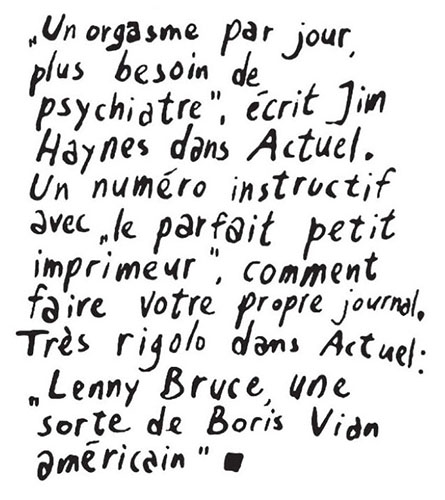 „Un orgasme par jour,
plus besoin de
psychiatre", écrit Jim
Haynes dans Actuel.
Un numéro instructif
avec „le parfait petit
imprimeur", comment
faire votre propre journal.
Très rigolo dans Actuel:
„Lenny Bruce, une
sorte de Boris Vian
américain" ■